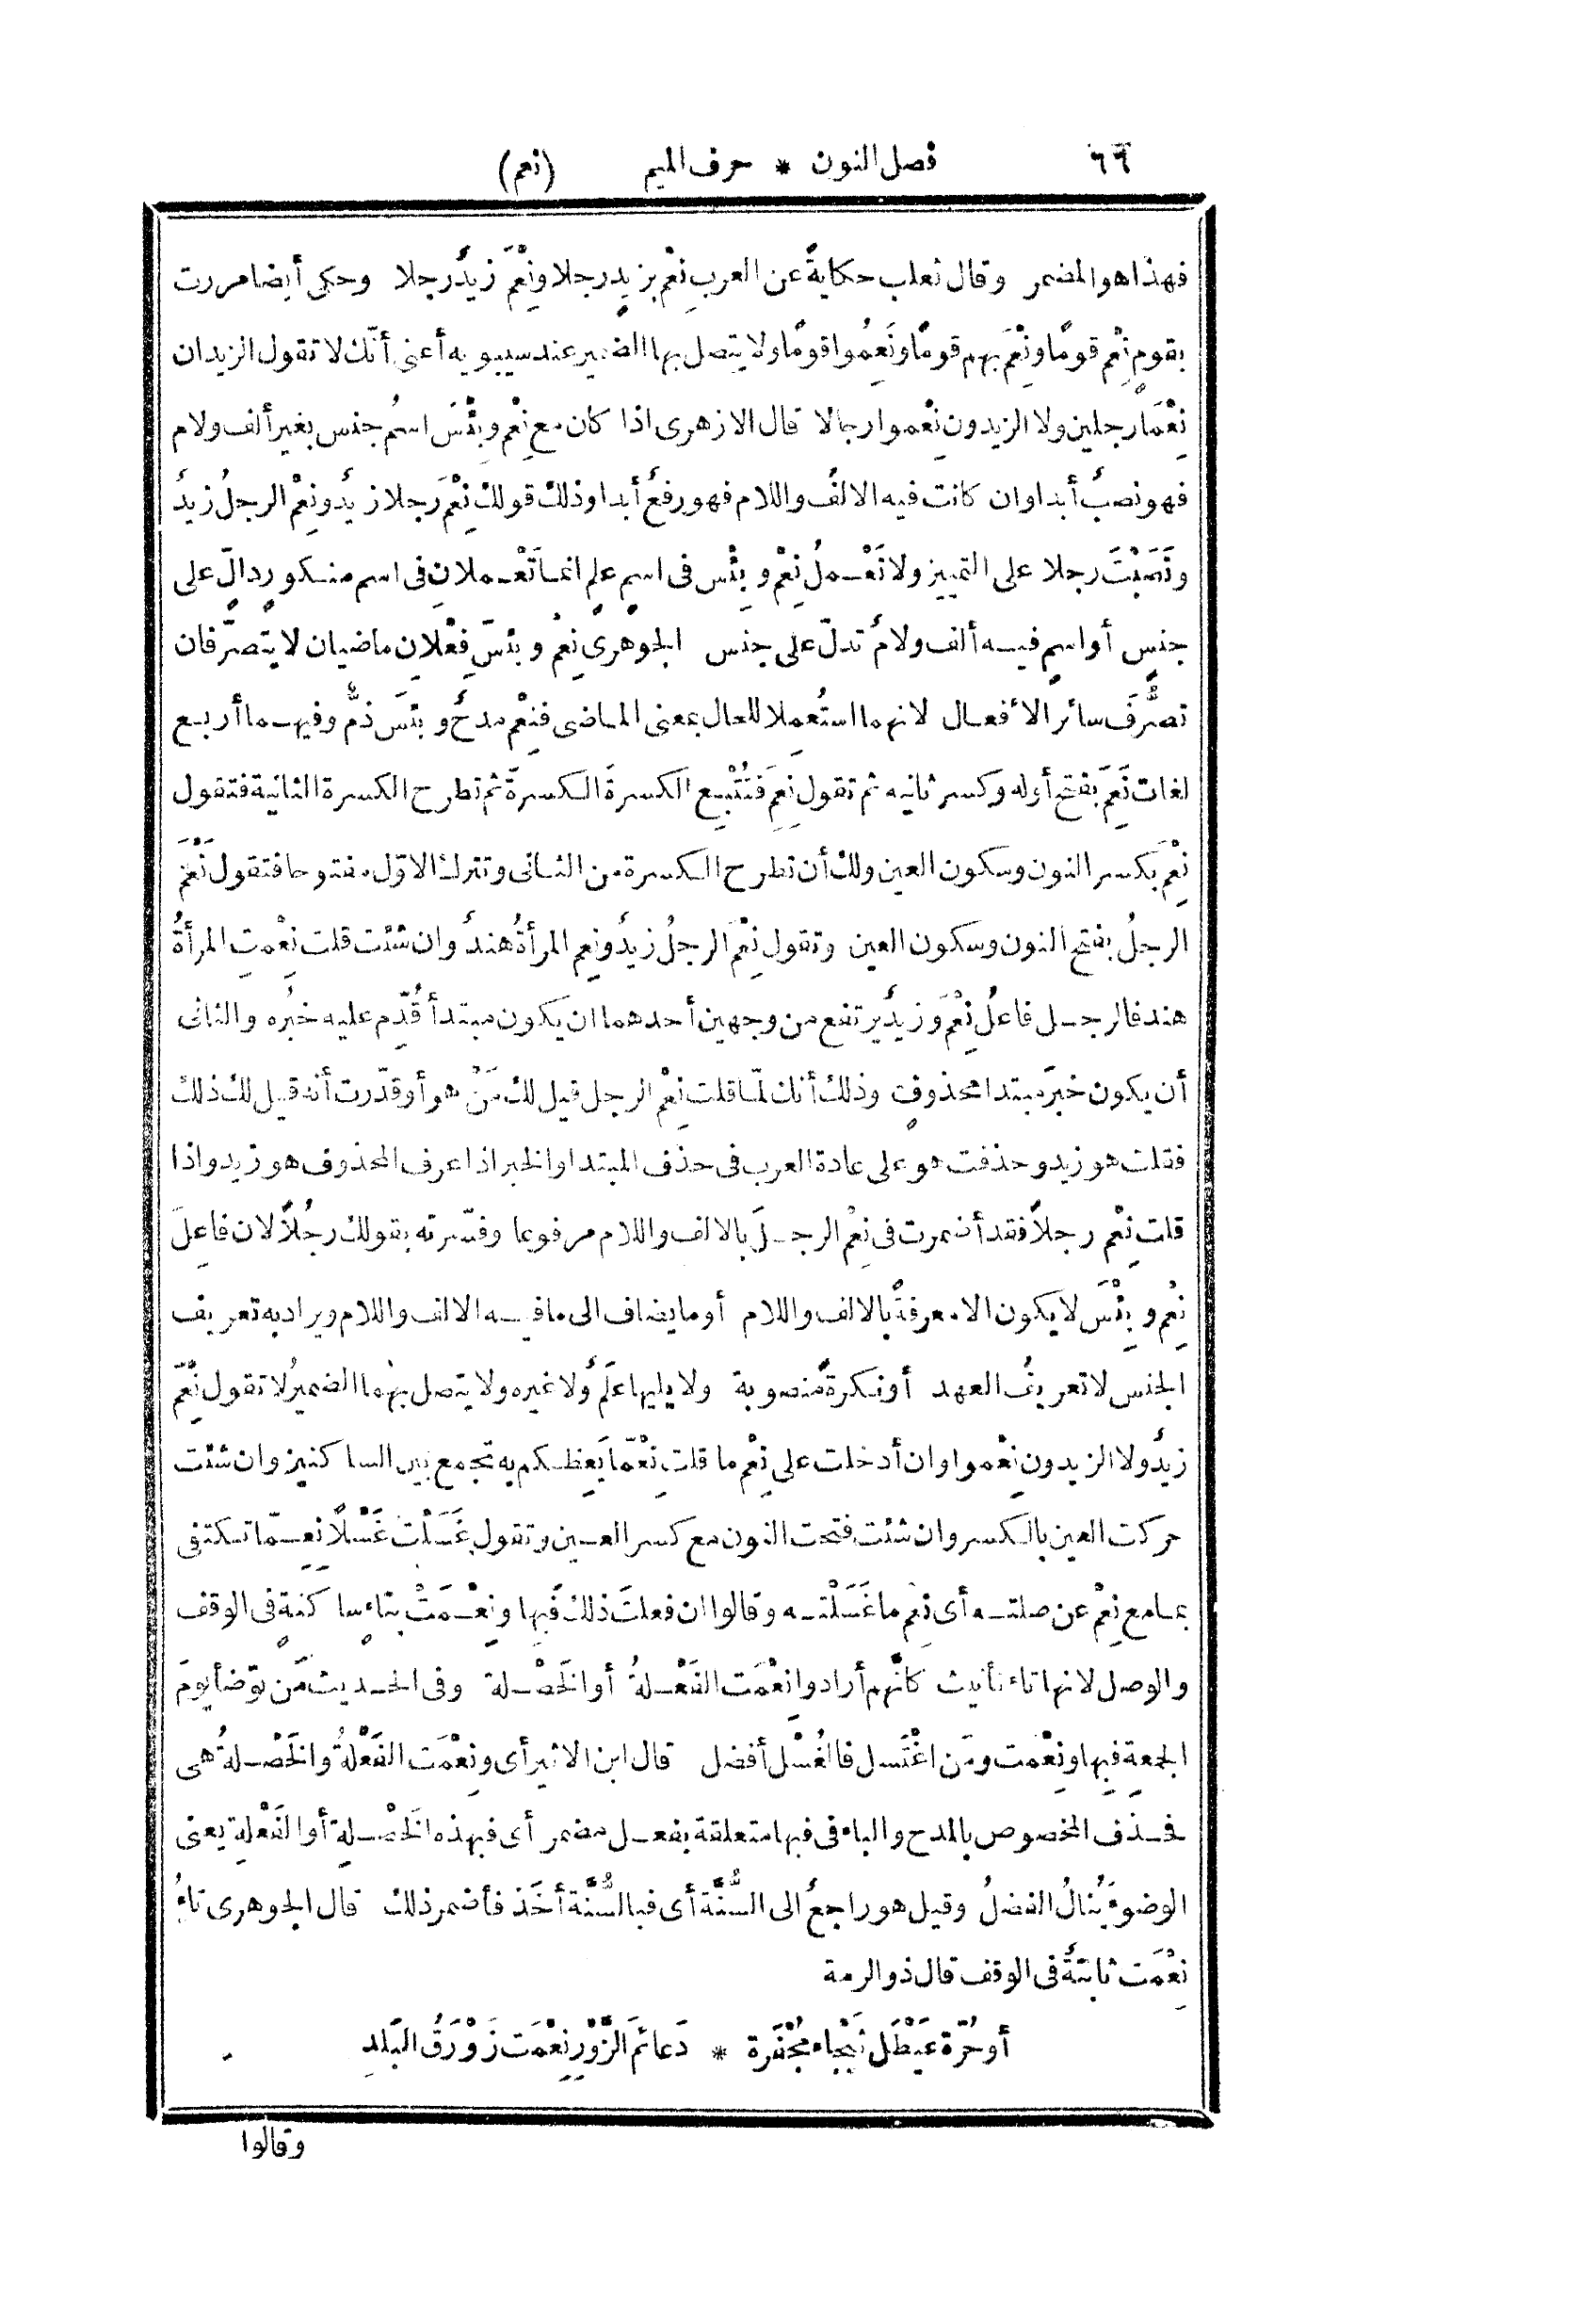 ٦٦ فصل النون * حرف الميم (نعم)
فهذا هو المضمر وقال ثعلب حكايةً عن العرب نِعْم بزيدٍ رجلا ونِعْمَ زيدٌ رجلا وحكى أيضا مررت
بقومٍ نِعْم قومًا ونِعْمَ بهم قومًا ونَعِمُوا قومًا ولا يتصل بها الضمير عند سيبويه أعنى أنّك لا تقول الزيدان
نِعْمَا رجلين ولا الزيدون نِعْموا رجالا قال الازهرى اذا كان مع نِعْم وبِئْسَ اسمُ جنس بغير ألف ولام
فهو نصبٌ أبدا وان كانت فيه الالفُ واللام فهو رفعٌ أبدا وذلك قولك نِعْمَ رجلا زيدٌ ونِعْمَ الرجلُ زيدٌ
ونَصَبْتَ رجلا على التمييز ولا تَعْملُ نِعْم وبِئْس فى اسمٍ علمٍ انما تَعْملانِ فى اسم منكورٍ دالّ على
جنسٍ أو اسمٍ فيه ألف ولامٌ تدلّ على جنس الجوهرى نِعْم وبِئْسَ فِعْلان ماضيان لا يتصرّفان
تصرُّفَ سائر الأفعال لانهما استُعملا للحال بمعنى الماضى فنِعْم مدحٌ وبِئْسَ ذمٌّ وفيهما أربع
لغات نَعِمَ بفتح أوله وكسر ثانيه ثم تقول نِعِمَ فتُتْبع الكسرةَ الكسرةَ ثم تطرح الكسرة الثانية فتقول
نِعْمَ بكسر النون وسكون العين ولك أن تطرح الكسرة من الثانى وتترك الاوّل مفتوحا فتقول نَعْمَ
الرجلُ بفتح النون وسكون العين وتقول نِعْمَ الرجلُ زيدٌ ونِعم المرأةُ هندٌ وان شئت قلت نِعْمتِ المرأةُ
هند فالرجل فاعلُ نِعْمَ وزيدٌ يرتفع من وجهين أحدهما ان يكون مبتدأ قُدّم عليه خبرُه والثانى
أن يكون خبرَ مبتدا محذوفٍ وذلك أنك لمّا قلت نِعْم الرجل قيل لك مَنْ هو أو قدّرت أنه قيل لك ذلك
فقلت هو زيد وحذفت هو على عادة العرب فى حذف المبتدا والخبر اذا عرف المحذوف هو زيد واذا
قلت نِعْم رجلاً فقد أضمرت فى نِعْم الرجلَ بالالف واللام مرفوعا وفسّرته بقولك رجُلاً لان فاعِلَ
نِعْم وبِئْسَ لا يكون الا معرفةً بالالف واللام أو ما يضاف الى ما فيه الالف واللام ويراد به تعريف
الجنس لا تعريفُ العهد أو نكرةً منصوبة ولا يليها علَمٌ ولا غيره ولا يتصل بهما الضميرُ لا تقول نِعْمَ
زيدٌ ولا الزيدون نِعْموا وان أدخلت على نِعْم ما قلت نِعْمّا يَعِظكم به تجمع بين الساكنين وان شئت
حركت العين بالكسر وان شئت فتحت النون مع كسر العين وتقول غَسَلْت غَسْلاً نِعِمّا تكتفى
بما مع نِعْم عن صلته أى نِعْم ما غَسَلْته وقالوا ان فعلتَ ذلك فَبِها ونِعْمَتْ بتاءٍ ساكنةٍ فى الوقف
والوصل لانها تاء تأنيث كأنَّهم أرادوا نِعْمَت الفَعْلةُ أو الخَصْلة وفى الحديث مَن توَضأ يومَ
الجمعةِ فبِها ونِعْمَت ومَن اغْتَسل فالغُسْل أفضل قال ابن الاثير أى ونِعْمَت الفَعْلةُ والخَصْلةُ هى
فحذف المخصوص بالمدح والباء فى فبها متعلقة بفعل مضمر أى فبهذه الخَصْلةِ أو الفَعْلةِ يعنى
الوضوءَ يُنالُ الفضلُ وقيل هو راجعٌ الى السُّنَّة أى فبالسُّنَّة أخَذ فأضمر ذلك قال الجوهرى تاءُ
نِعْمَت ثابتةٌ فى الوقف قال ذو الرمة
أو حُرّة عَيْطَل ثَبْجاء مُجْفَرة * دَعائمَ الزَّوْرِ نِعْمَت زَوْرَقُ البَلَدِ
وقالوا